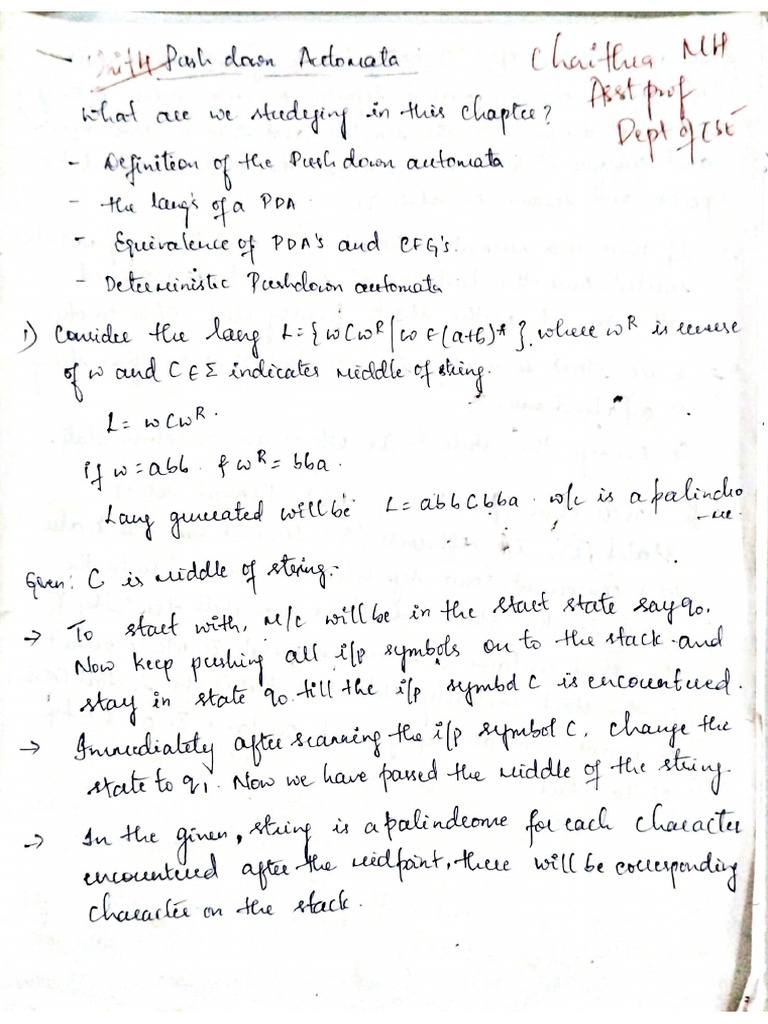 Unit 4 Push down Automata
Chaithra MH
Asst prof
Dept of CSE
What are we studying in this chapter?
- Definition of the Push down automata
- the lang's of a PDA.
- Equivalence of PDA's and CFG's.
- Deterministic Pushdown automata
1) Consider the lang L={wCwᴿ|w∈(a+b)*}. where wᴿ is reverse
of w and C∈Σ indicates middle of string.
L= wCwᴿ.
if w=abb. & wᴿ= bba.
Lang generated will be L=abbCbba. w/c is a palindro
-me.
Given: C is middle of string.
→ To start with, M/c will be in the start state say q0.
Now keep pushing all i/p symbols on to the stack and
stay in state q0 till the i/p symbol C is encountered.
→ Immediately after scanning the i/p symbol C, change the
state to q1. Now we have passed the middle of the string
→ In the given, string is a palindrome for each character
encountered after the midpoint, there will be corresponding
character on the stack.